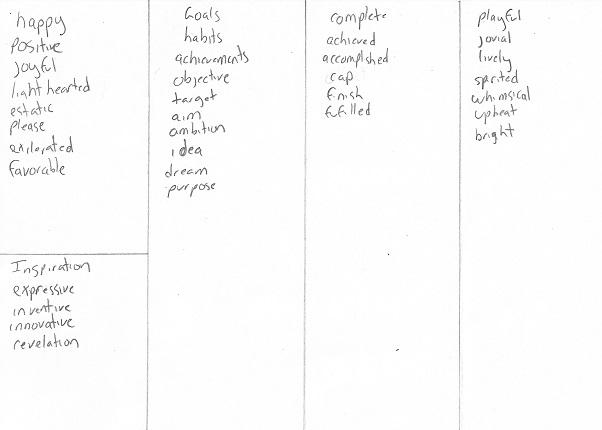 happy
Positive
Joyful
light hearted
estatic
Please
exilorated
favorable
Inspiration
expressive
inventive
innovative
revelation
Goals
habits
achievements
objective
target
aim
ambition
idea
dream
purpose
complete
achieved
accomplished
cap
finish
fufilled
playful
jovial
lively
sprited
whimsical
upbeat
bright